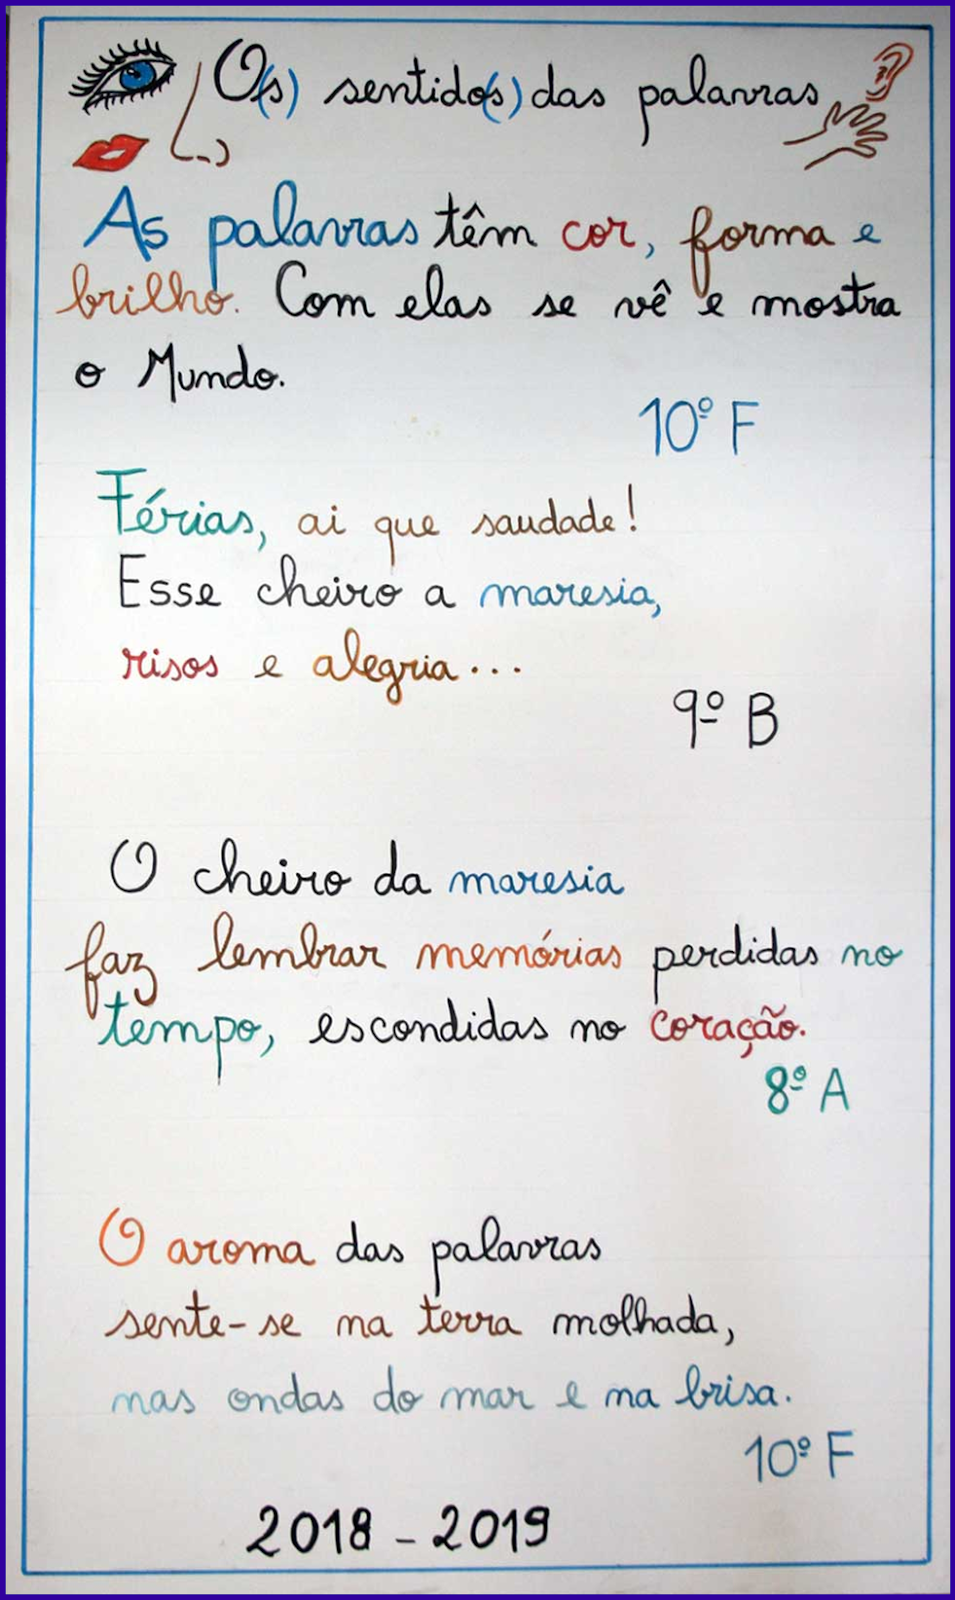 O(s) sentido(s) das palavras
As palavras têm cor, forma e
brilho. Com elas se vê e mostra
o Mundo.
10º F
Férias, ai que saudade!
Esse cheiro a maresia,
risos e alegria...
9º B
O cheiro da maresia
faz lembrar memórias perdidas no
tempo, escondidas no coração.
8º A
O aroma das palavras
sente-se na terra molhada,
nas ondas do mar e na brisa.
10º F
2018 - 2019